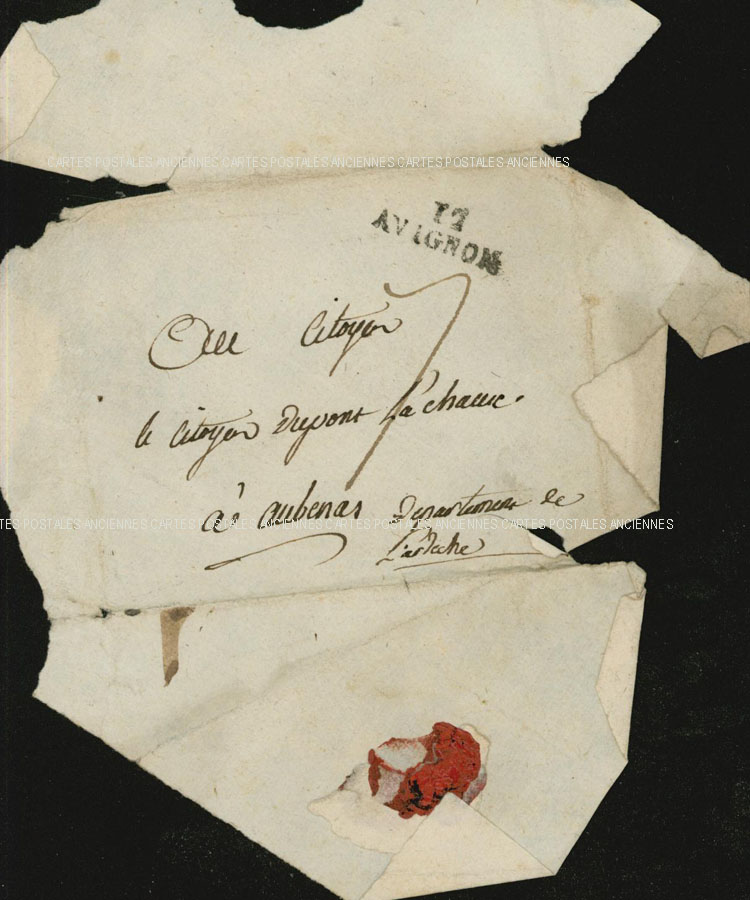 CARTES POSTALES ANCIENNES CARTES POSTALES ANCIENNES CARTES POSTALES ANCIENNES
12
AVIGNON
7
Au Citoyen
le Citoyen Dupont La chaux.
à aubenas Departement de
L'ardeche
TES POSTALES ANCIENNES CARTES POSTALES ANCIENNES CARTES POSTALES ANCIENNES CARTES POSTALES ANCIENNES